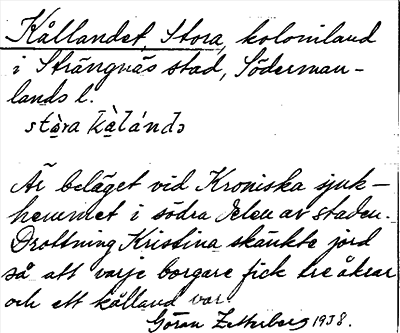 Kållandet, Stora, koloniland
i Strängnäs stad, Söderman-
lands l.
stòra kàlánds
Är beläget vid Kroniska sjuk-
hemmet i södra delen av staden.
Drottning Kristina skänkte jord
så att varje borgare fick tre åkrar
och ett kålland var.
Göran Zetterberg 1938.